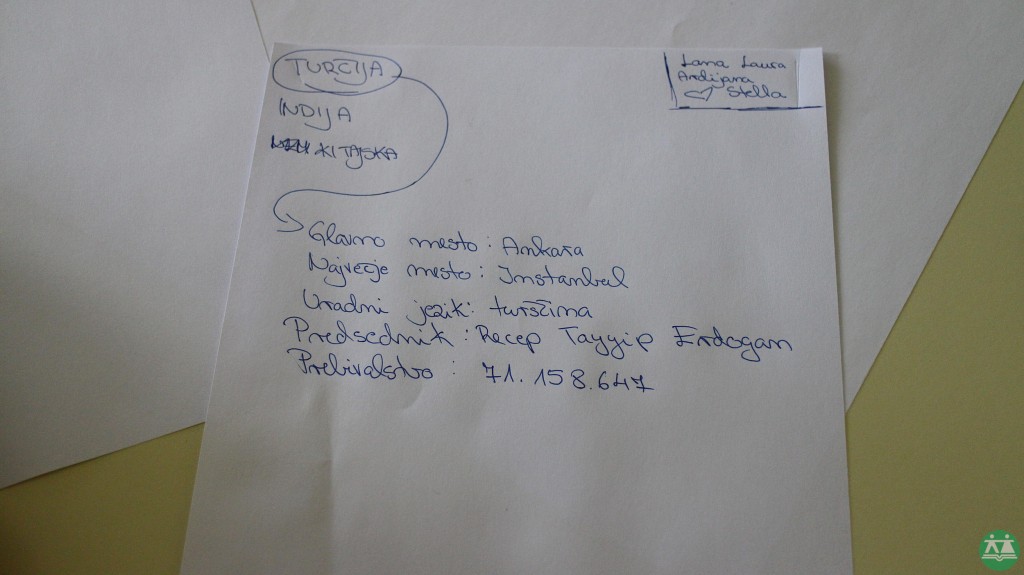 TURČIJA
INDIJA
KITAJSKA
Lana Laura
Andijana
Stella
Glavno mesto: Ankara
Največje mesto: Instanbul
Uradni jezik: turščina
Predsednik: Recep Tayyip Erdogan
Prebivalstvo: 71.158.647